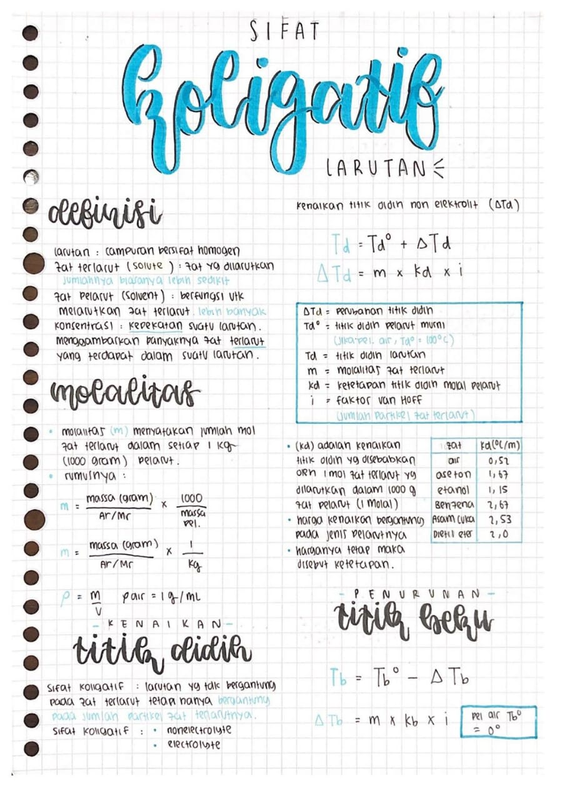 SIFAT
koligatif
LARUTAN
definisi
larutan : campuran bersifat homogen
zat terlarut (solute) : zat yg dilarutkan
jumlahnya biasanya lebih sedikit
zat pelarut (solvent) : berfungsi utk
melarutkan zat terlarut. lebih banyak
konsentrasi : kepekatan suatu larutan.
menggambarkan banyaknya zat terlarut
yang terdapat dalam suatu larutan.
molalitas
• molalitas (m) menyatakan jumlah mol
zat terlarut dalam setiap 1 kg
(1000 gram) pelarut.
• rumusnya :
m = massa (gram) / Ar/Mr × 1000 / massa pel.
m = massa (gram) / Ar/Mr × 1 / kg
ρ = m / v ρair = 1 g/mL
- KENAIKAN -
titik didih
sifat koligatif : larutan yg tdk bergantung
pada zat terlarut tetap hanya bergantung
pada jumlah partikel zat terlarutnya.
sifat koligatif : • nonelectrolyte
• electrolyte
kenaikan titik didih non elektrolit (ΔTd)
Td = Td° + ΔTd
ΔTd = m × kd × i
ΔTd = perubahan titik didih
Td° = titik didih pelarut murni
(jika pel. air, Td° = 100°C)
Td = titik didih larutan
m = molalitas zat terlarut
kd = ketetapan titik didih molal pelarut
i = faktor van Hoff
(jumlah partikel zat terlarut)
• (kd) adalah kenaikan
titik didih yg disebabkan
oleh 1 mol zat terlarut yg
dilarutkan dalam 1000 g
zat pelarut (1 molal)
• harga kenaikan bergantung
pada jenis pelarutnya
• harganya tetap maka
disebut ketetapan.
zat kd(°C/m)
air 0,52
aseton 1,67
etanol 1,15
benzena 2,67
Asam cuka 2,53
Dietil eter 2,0
- PENURUNAN -
titik beku
Tb = Tb° - ΔTb
ΔTb = m × kb × i
pel air Tb°
= 0°